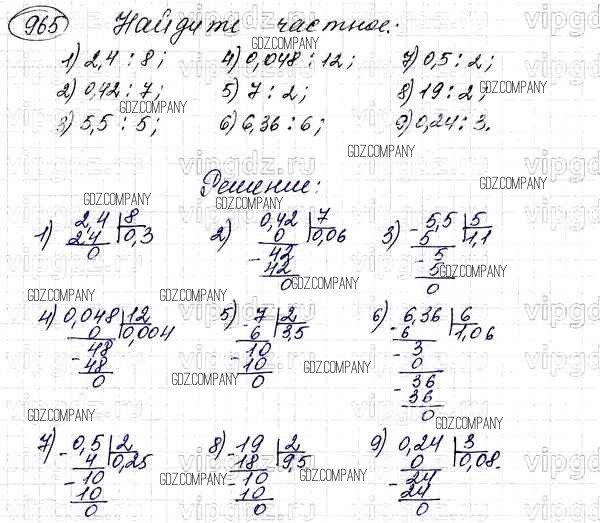 965 Найдите частное:
1) 2,4 : 8; 4) 0,048 : 12; 7) 0,5 : 2;
2) 0,42 : 7; 5) 7 : 2; 8) 19 : 2;
3) 5,5 : 5; 6) 6,36 : 6; 9) 0,24 : 3.
Решение:
1) 2,4 | 8 2) 0,42 | 7 3) - 5,5 | 5
2,4 0,3 0 0,06 5 1,1
0 - 42 - 5
42 5
0 0
4) 0,048 | 12 5) - 7 | 2 6) - 6,36 | 6
0 0,004 6 3,5 6 1,06
- 48 - 10 - 3
48 10 0
0 0 - 36
36
0
7) - 0,5 | 2 8) - 19 | 2 9) 0,24 | 3
4 0,25 18 9,5 0 0,08.
- 10 - 10 - 24
10 10 24
0 0 0
GDZ.COMPANY
vipgdz.ru